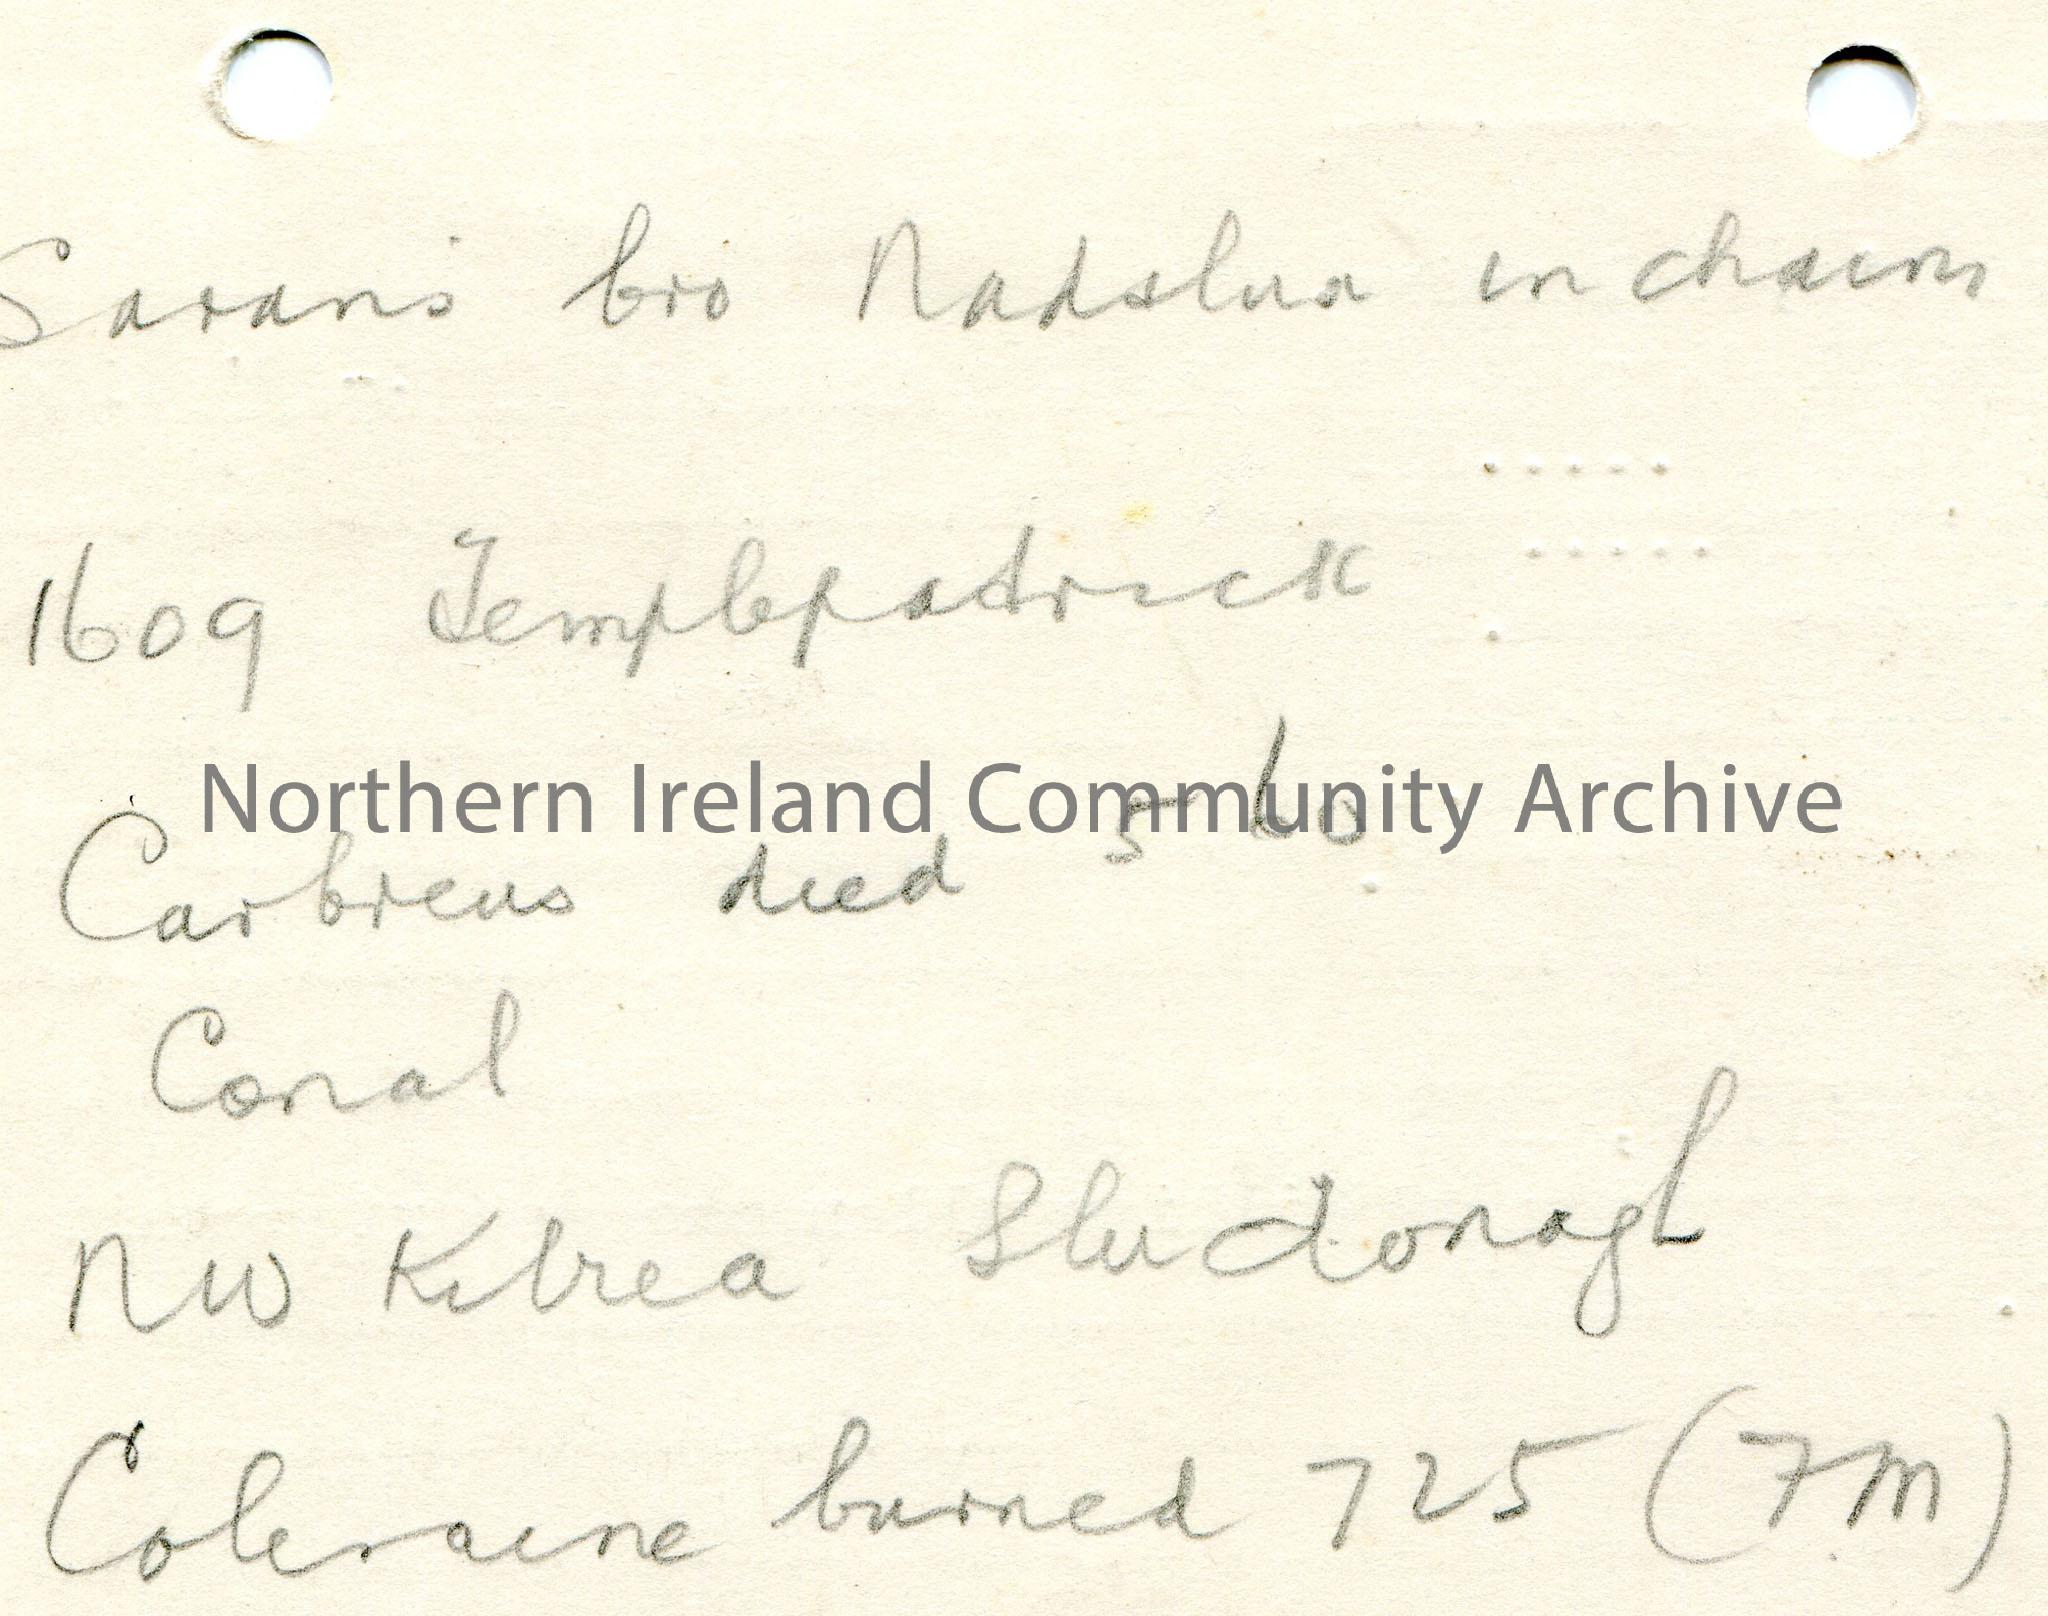 Saran's bro Nadslua in chains
1609 Templepatrick
Northern Ireland Community Archive
Carbreus died 560
Conal
NW Kilrea Sludonagh
Coleraine burned 725 (FM)